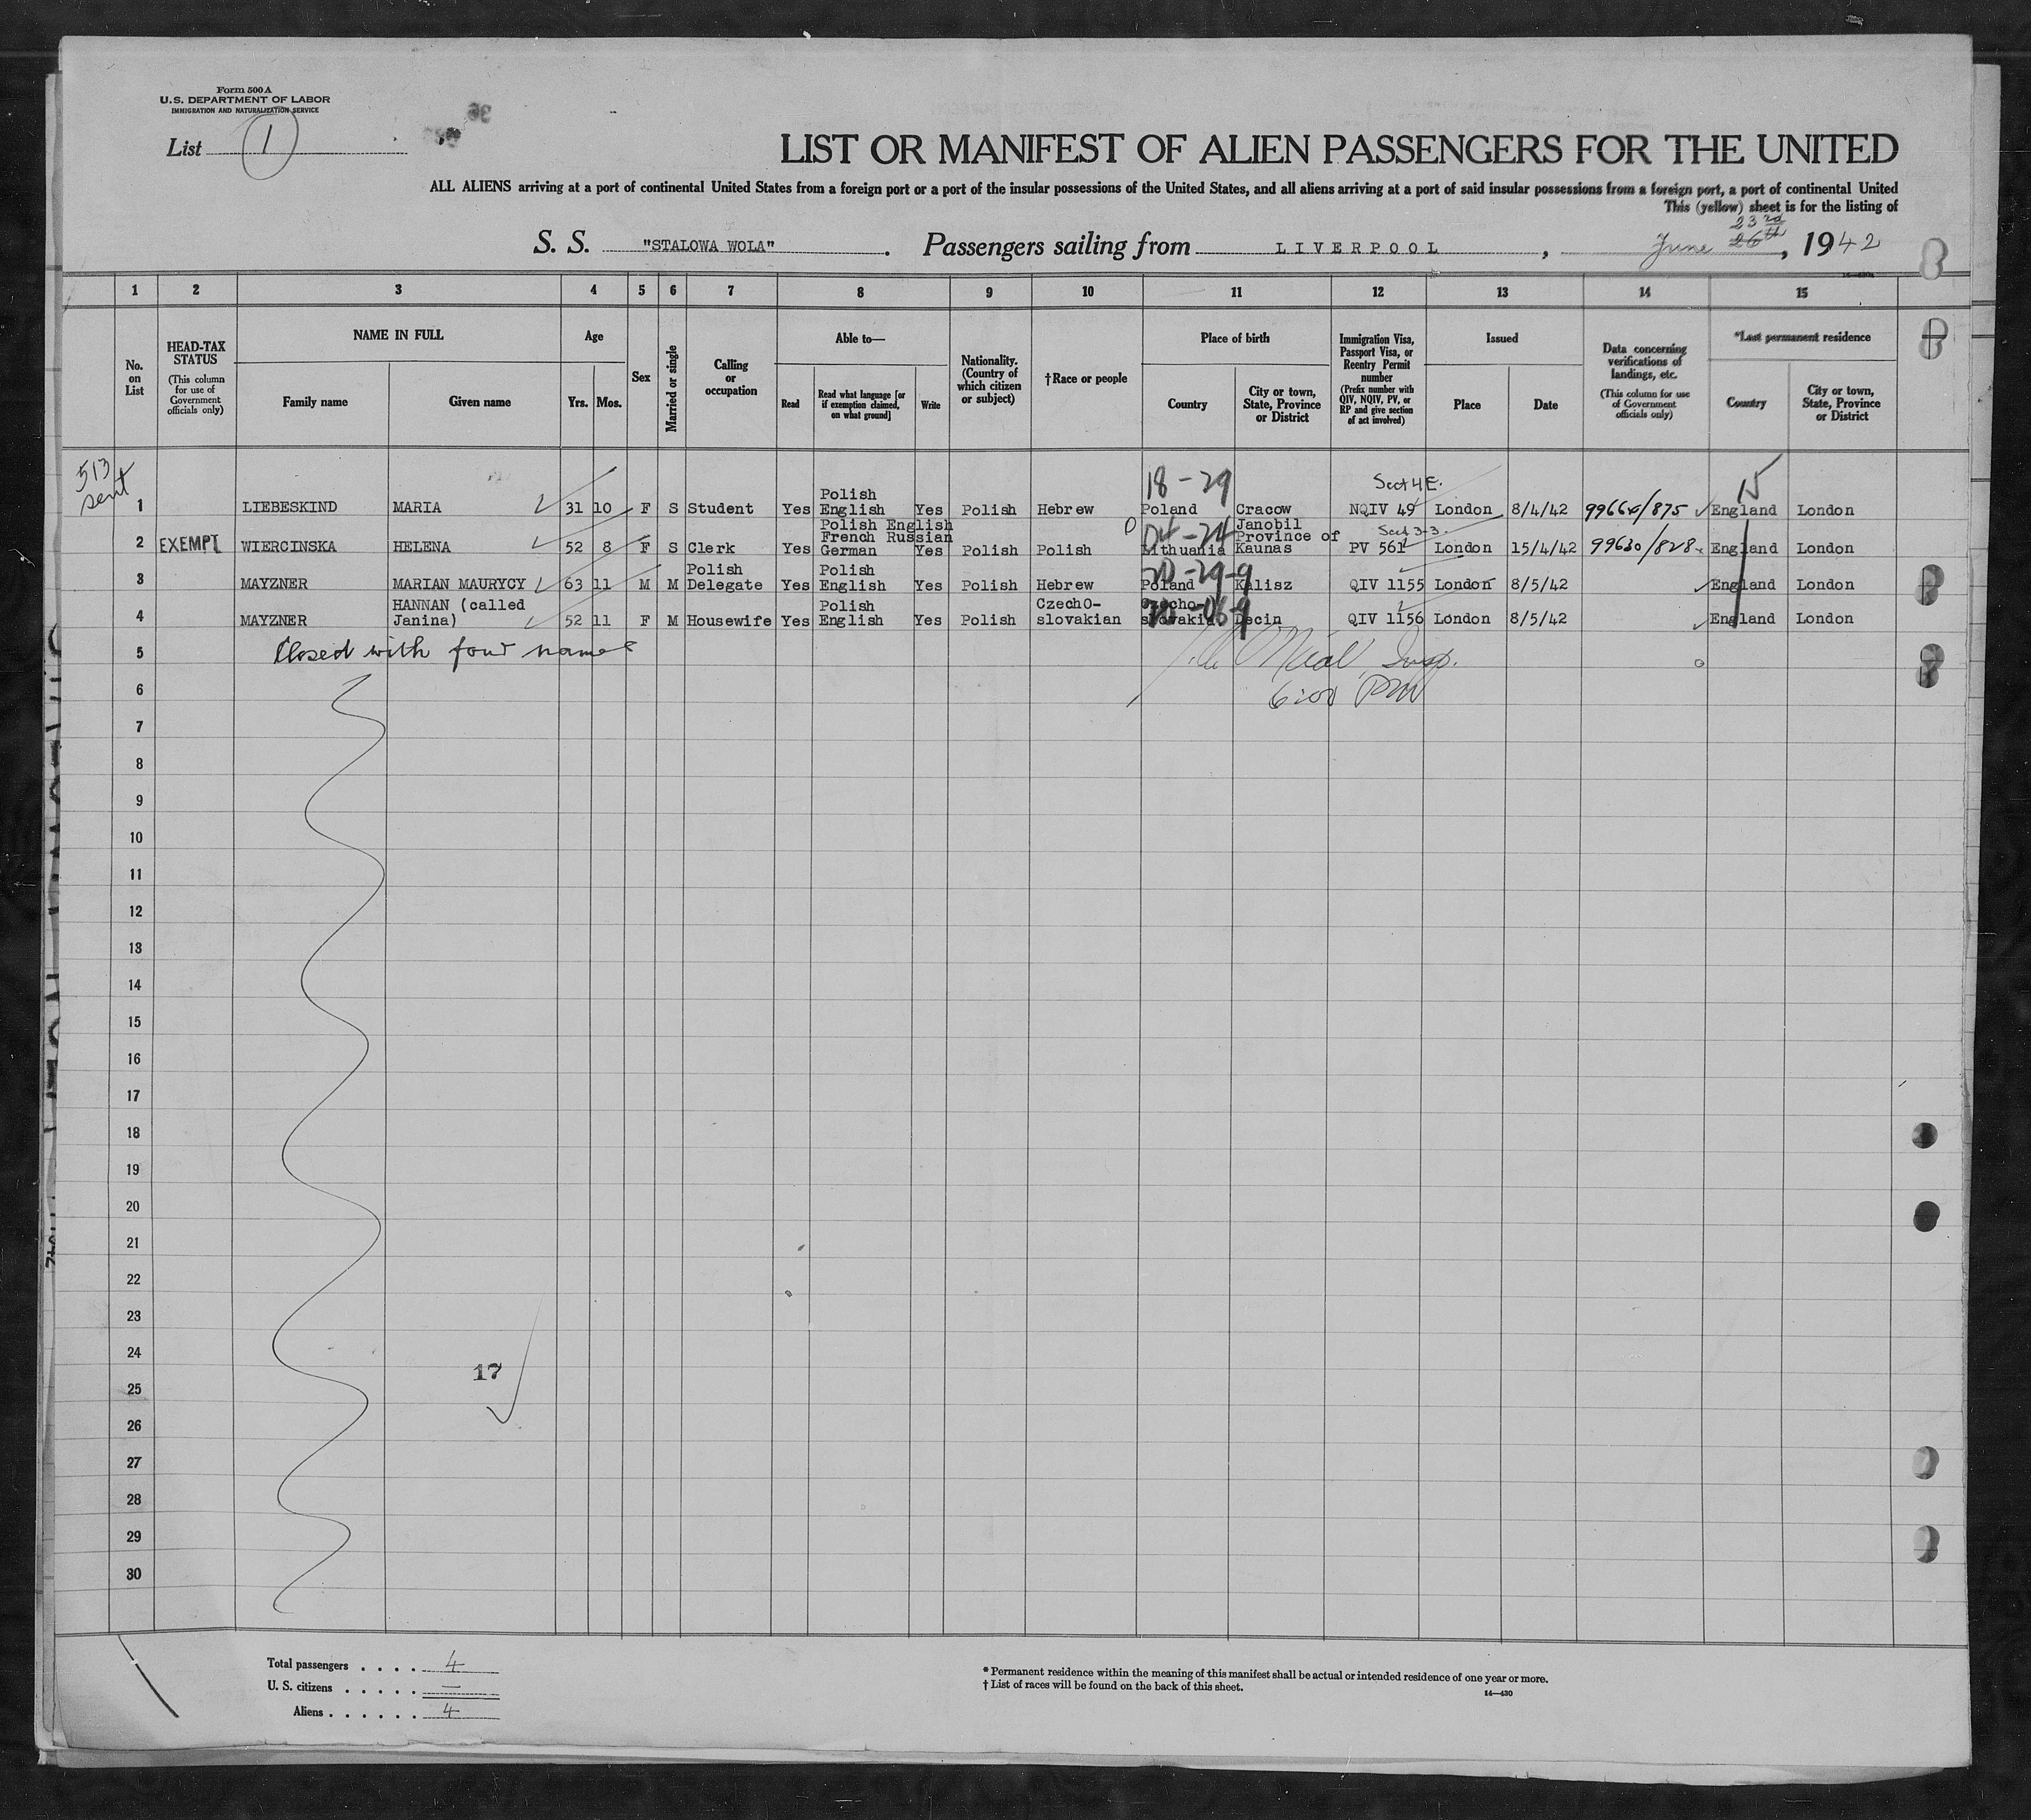 Form 500 A
U.S. DEPARTMENT OF LABOR
IMMIGRATION AND NATURALIZATION SERVICE
List 1
36
LIST OR MANIFEST OF ALIEN PASSENGERS FOR THE UNITED
ALL ALIENS arriving at a port of continental United States from a foreign port or a port of the insular possessions of the United States, and all aliens arriving at a port of said insular possessions from a foreign port, a port of continental United
This (yellow) sheet is for the listing of
23rd
S. S. "STALOWA WOLA". Passengers sailing from LIVERPOOL, June 26th, 1942
1 2 3 4 5 6 7 8 9 10 11 12 13 14 15
No. on List
HEAD-TAX STATUS (This column for use of Government officials only)
NAME IN FULL
Family name Given name
Age
Yrs. Mos.
Sex
Married or single
Calling or occupation
Able to—
Read
Read what language [or if exemption claimed, on what ground]
Write
Nationality. (Country of which citizen or subject)
†Race or people
Place of birth
Country
City or town, State, Province or District
Immigration Visa, Passport Visa, or Reentry Permit number (Prefix number with QIV, NQIV, PV, or RP and give section of act involved)
Issued
Place Date
Data concerning verifications of landings, etc. (This column for use of Government officials only)
*Last permanent residence
Country
City or town, State, Province or District
513 sent
18-29 Sect 4E. 15
1 LIEBESKIND MARIA 31 10 F S Student Yes Polish English Yes Polish Hebrew Poland Cracow NQIV 49 London 8/4/42 99664/875 England London
04-24 Sect 3-3.
2 EXEMPT WIERCINSKA HELENA 52 8 F S Clerk Yes Polish English French Russian German Yes Polish Polish Lithuania Janobil Province of Kaunas PV 561 London 15/4/42 99630/828 England London
20-29-9
3 MAYZNER MARIAN MAURYCY 63 11 M M Polish Delegate Yes Polish English Yes Polish Hebrew Poland Kalisz QIV 1155 London 8/5/42 England London
4 MAYZNER HANNAN (called Janina) 52 11 F M Housewife Yes Polish English Yes Polish CzechO-slovakian Czecho-slovakia Decin QIV 1156 London 8/5/42 England London
5 Closed with four names Insp.
6 6:00 PM
7
8
9
10
11
12
13
14
15
16
17
18
19
20
21
22
23
24
17
25
26
27
28
29
30
Total passengers . . . . 4
U. S. citizens . . . . . —
Aliens . . . . . . 4
* Permanent residence within the meaning of this manifest shall be actual or intended residence of one year or more.
† List of races will be found on the back of this sheet.
14—430